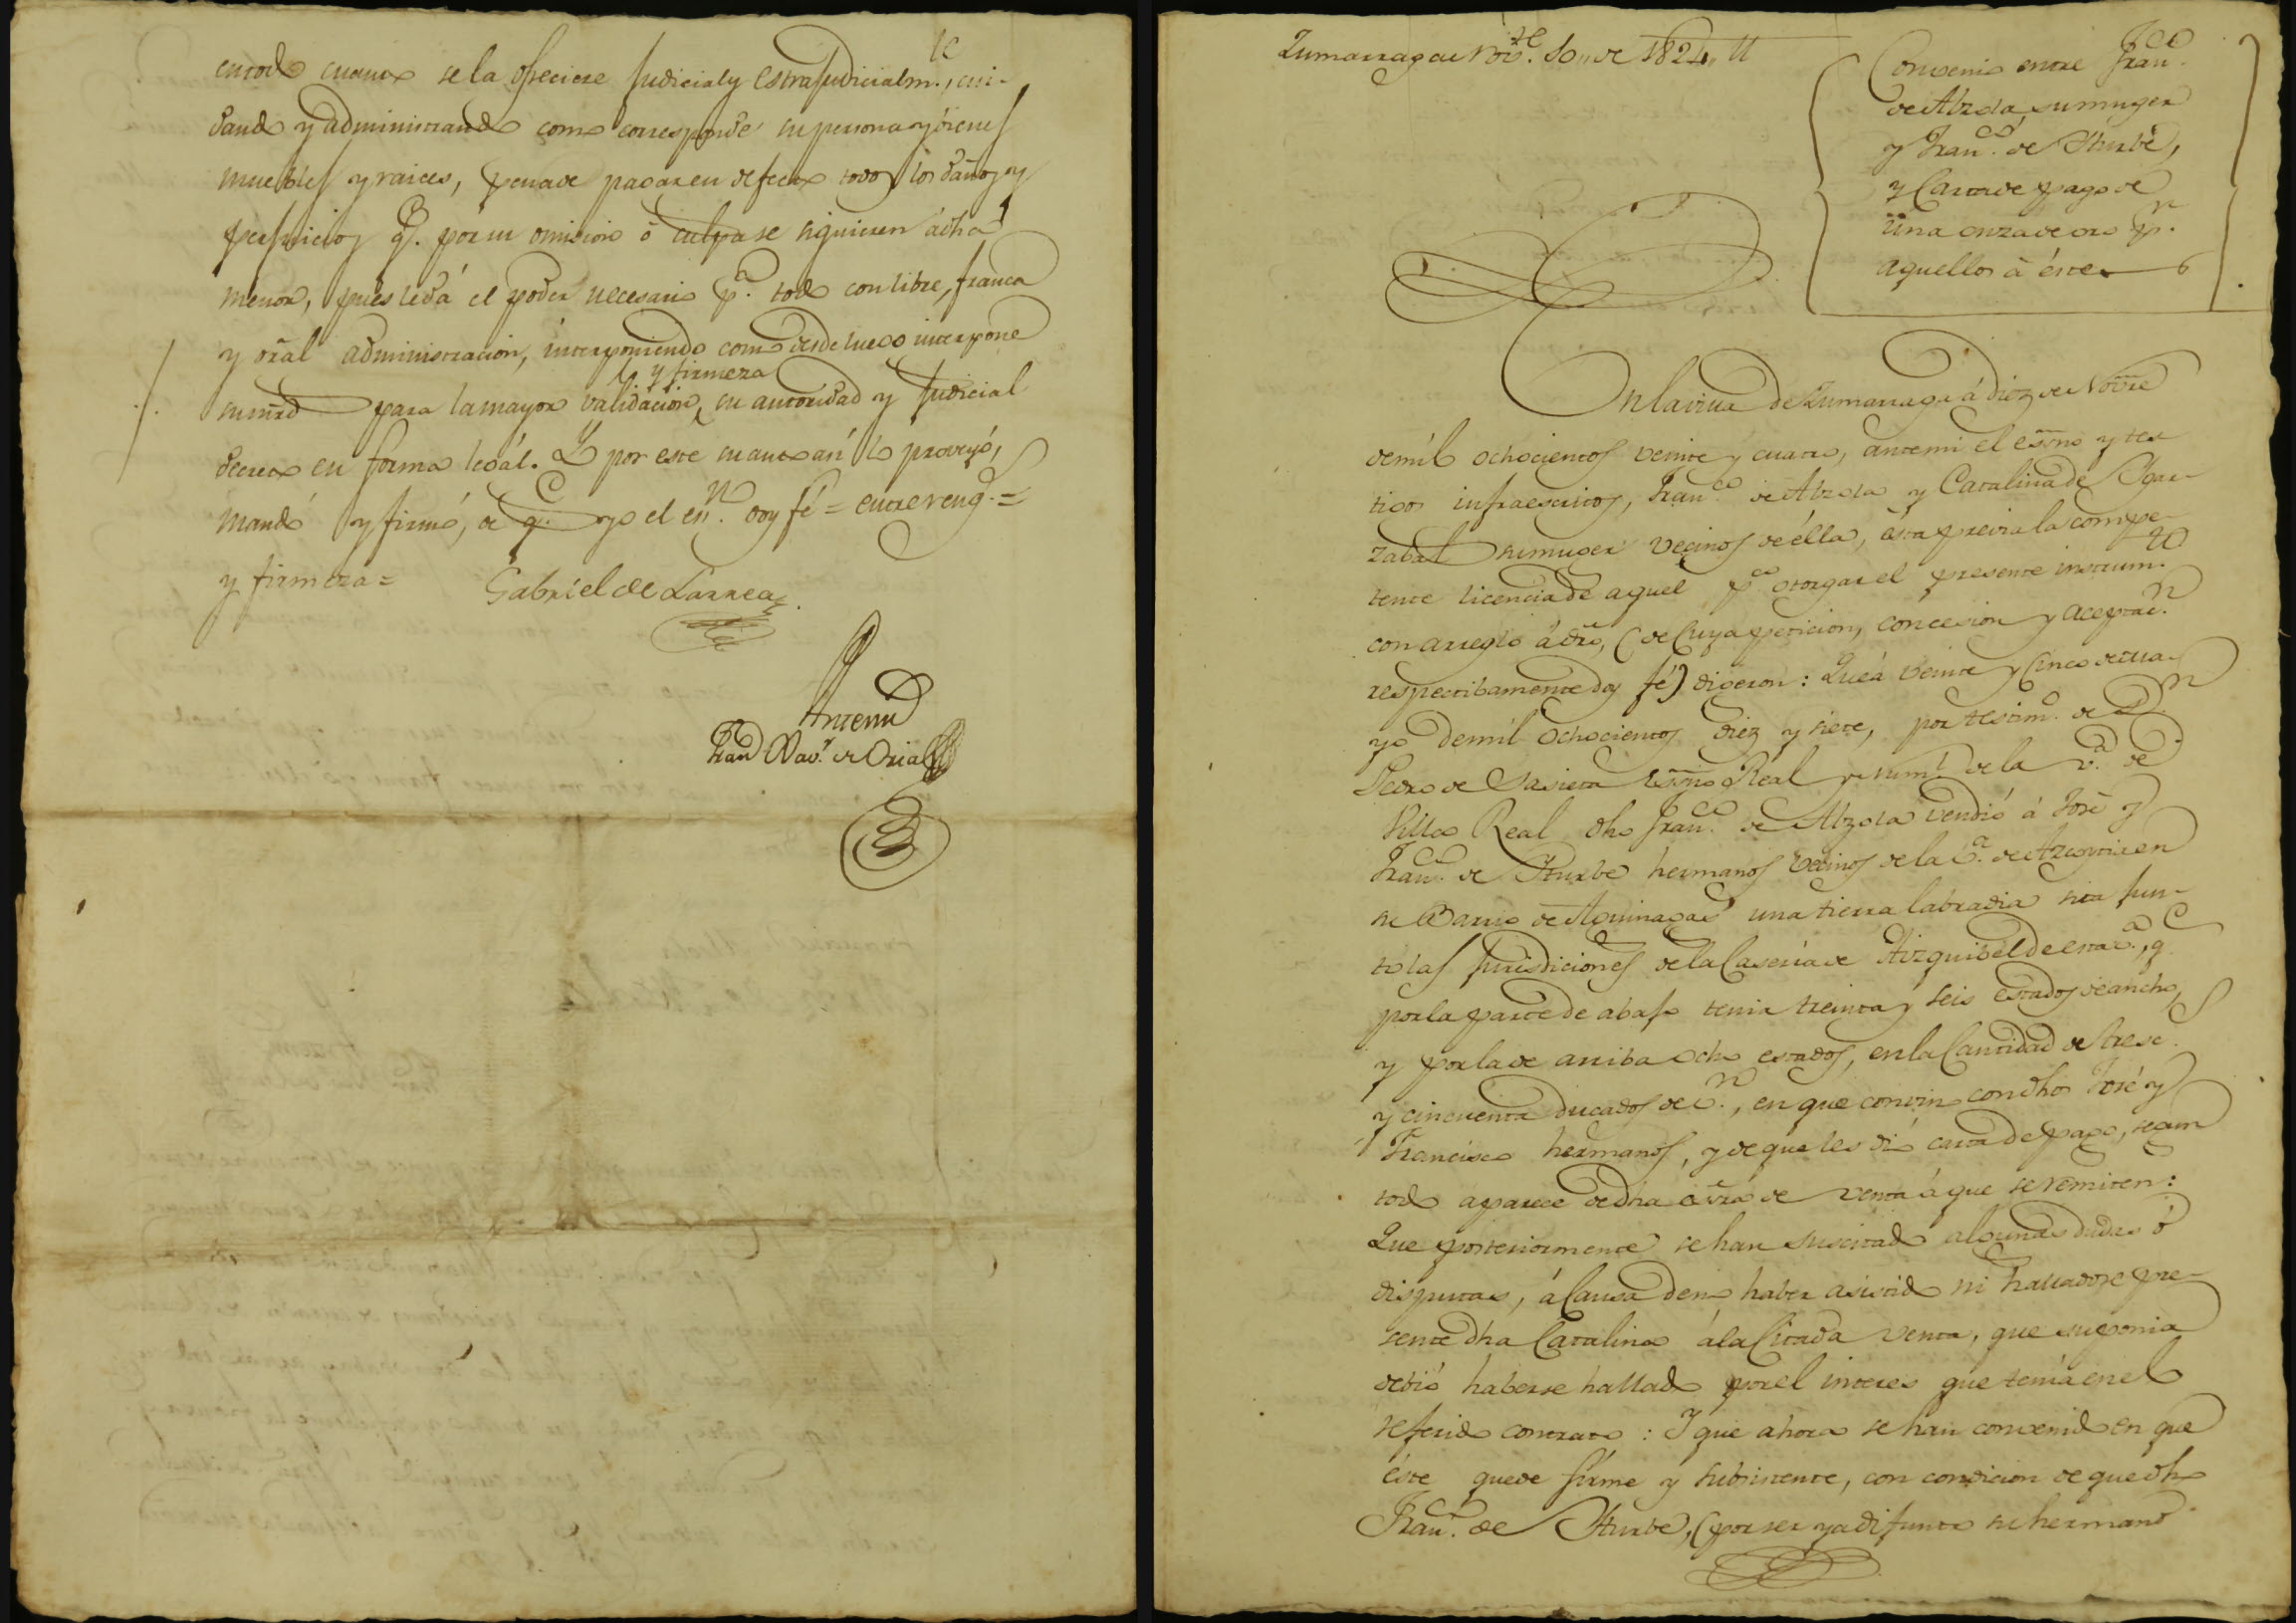 en todo cuanto se la ofreciere Judicial y estraJudicialm.te, cui-
dando y administrando como corresponde su persona y bienes
muebles y raices, pena de pagar en defecto todos los daños y
perJuicios q.e por su omision ó culpa se siguieren á dha
menor, pues le dá el poder necesario p.a todo con libre, franca
y gral administracion, interponiendo como desde luego interpone
su mrd para la mayor validacion y firmeza su autoridad y Judicial
decreto en forma legál. Y por este su auto así lo proveyó,
mandó y firmó, de q.e yo el esn.o doy fé = entrereng.s =
y firmeza =
Gabriel de Larrea
Antemi
Fran.co Nav.r de Oria
Zumarraga Nov.re 10,, de 1824,,
Convenio entre Fran.co
de Alzola, su muger
y Fran.co de Iturbe,
y Carta de pago de
una onza de oro p.r
aquellos á éste
En la villa de Zumarraga á diez de Novre
de mil ochocientos veinte y cuatro, ante mi el essno y tes
tigos infraescritos, Fran.co de Alzola y Catalina de Ygar-
zabal su muger vecinos de élla, ésta previa la compe-
tente licencia de aquel p.a otorgar el presente instrum.to
con arreglo á dro, (de Cuya peticion, concesion y aceptac.n
respectibamente doy fé) digeron: Que á veinte y Cinco de Ma-
yo de mil ochocientos diez y siete, por testim.o de D.n
Pedro de Sasieta Essno Real y num.l de la v.a de
Villa Real dho Fran.co de Alzola vendió á José y
Fran.co de Iturbe hermanos vecinos de la v.a de Azcoytia en
su Barrio de Aguinaga una tierra labradia sita Jun-
to las Jurisdiciones de la Caseria de Aizquibel de esta v.a, q.e
por la parte de abaJo tenia treinta y seis estados de ancho,
y por la de arriba ocho estados, en la Cantidad de tresc.s
y cincuenta ducados de v.n, en que convino con dhos José y
Francisco hermanos, y de que les dió carta de pago, segun
todo aparece de dha esra de venta á que se remiten:
Que posteriormente se han suscitado algunas dudas ó
disputas, á Causa de no haber asistido ni halladose pre-
sente dha Catalina á la Citada venta, que suponia
debió haberse hallado por el interes que tenía en el
referido contrato: Y que ahora se han convenido en que
éste quede firme y subsistente, con condicion de que dho
Fran.co de Iturbe, (por ser ya difunto su hermano